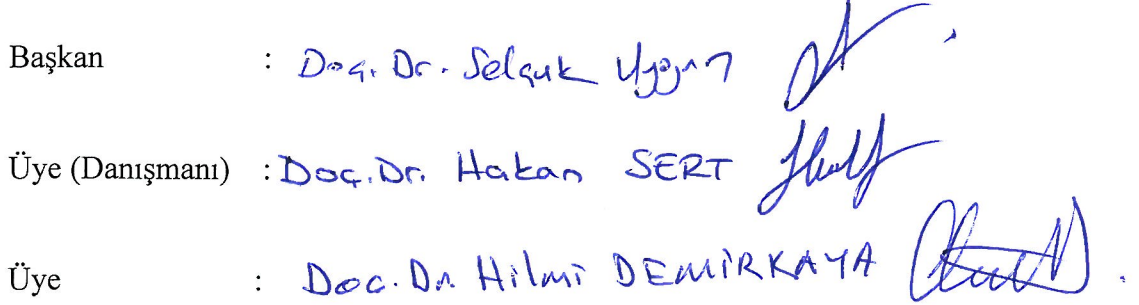 Başkan : Doç. Dr. Selçuk Uygun
Üye (Danışmanı) : Doç. Dr. Hakan SERT
Üye : Doc. Dr. Hilmi DEMİRKAYA